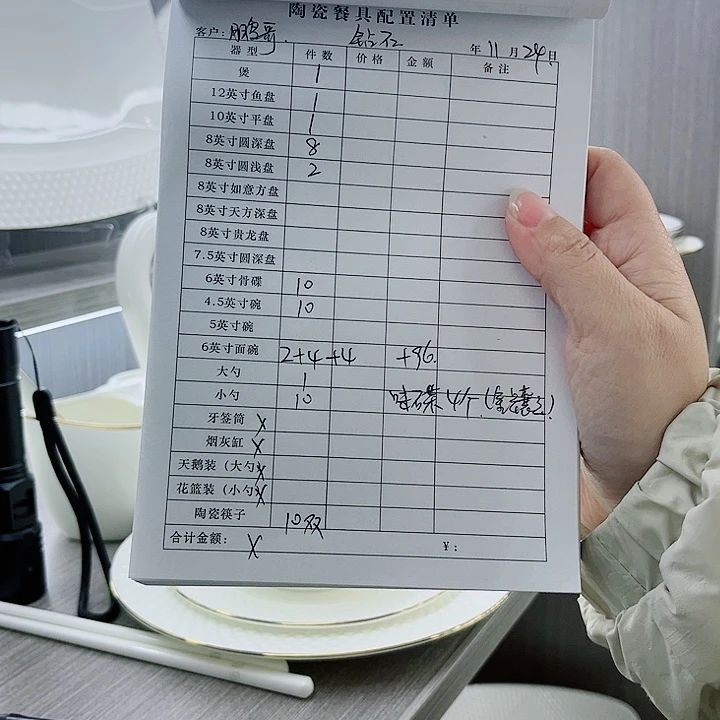 陶瓷餐具配置清单
客户: 鹏哥. 钻石 年 11 月 24 日
器型 件数 价格 金额 备注
煲 1
12英寸鱼盘 1
10英寸平盘 1
8英寸圆深盘 8
8英寸圆浅盘 2
8英寸如意方盘
8英寸天方深盘
8英寸贵龙盘
7.5英寸圆深盘
6英寸骨碟 10
4.5英寸碗 10
5英寸碗
6英寸面碗 2+4+4 +96.
大勺 1
小勺 10 味碟4个
牙签筒 x
烟灰缸 x
天鹅装（大勺 x
花篮装（小勺 x
陶瓷筷子 10双
合计金额: x ¥: